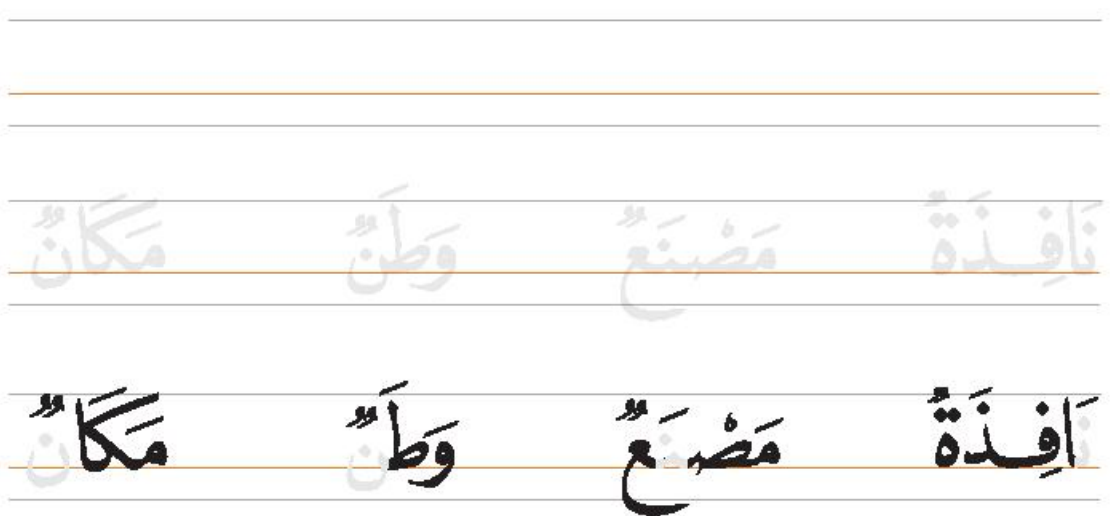 نَافِـذَةٌ مَصْنَعٌ وَطَنٌ مَكَانٌ
نَافِـذَةٌ مَصْنَعٌ وَطَنٌ مَكَانٌ